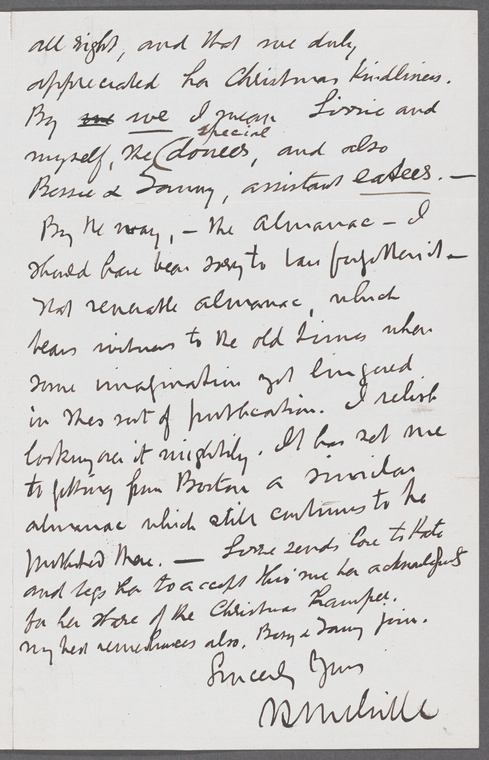 all right, and that we duly
appreciated her Christmas kindliness.
By we I mean Lizzie and
special
myself, the (donees, and also
Bessie & Fanny, assistant eatees. —
By the way, — the almanac — I
should have been sorry to have forgotten it —
that venerable almanac, which
bears witness to the old times when
some imagination yet lingered
in this sort of publication. I relish
looking over it mightily. It has set me
to getting from Boston a similar
almanac which still continues to be
published there. — Lizzie sends love to Kate
and begs her to accept thro' me her acknowledgments
for her share of the Christmas Hamper.
my best remembrances also. Bessy & Fanny join.
Sincerely Yours
H Melville